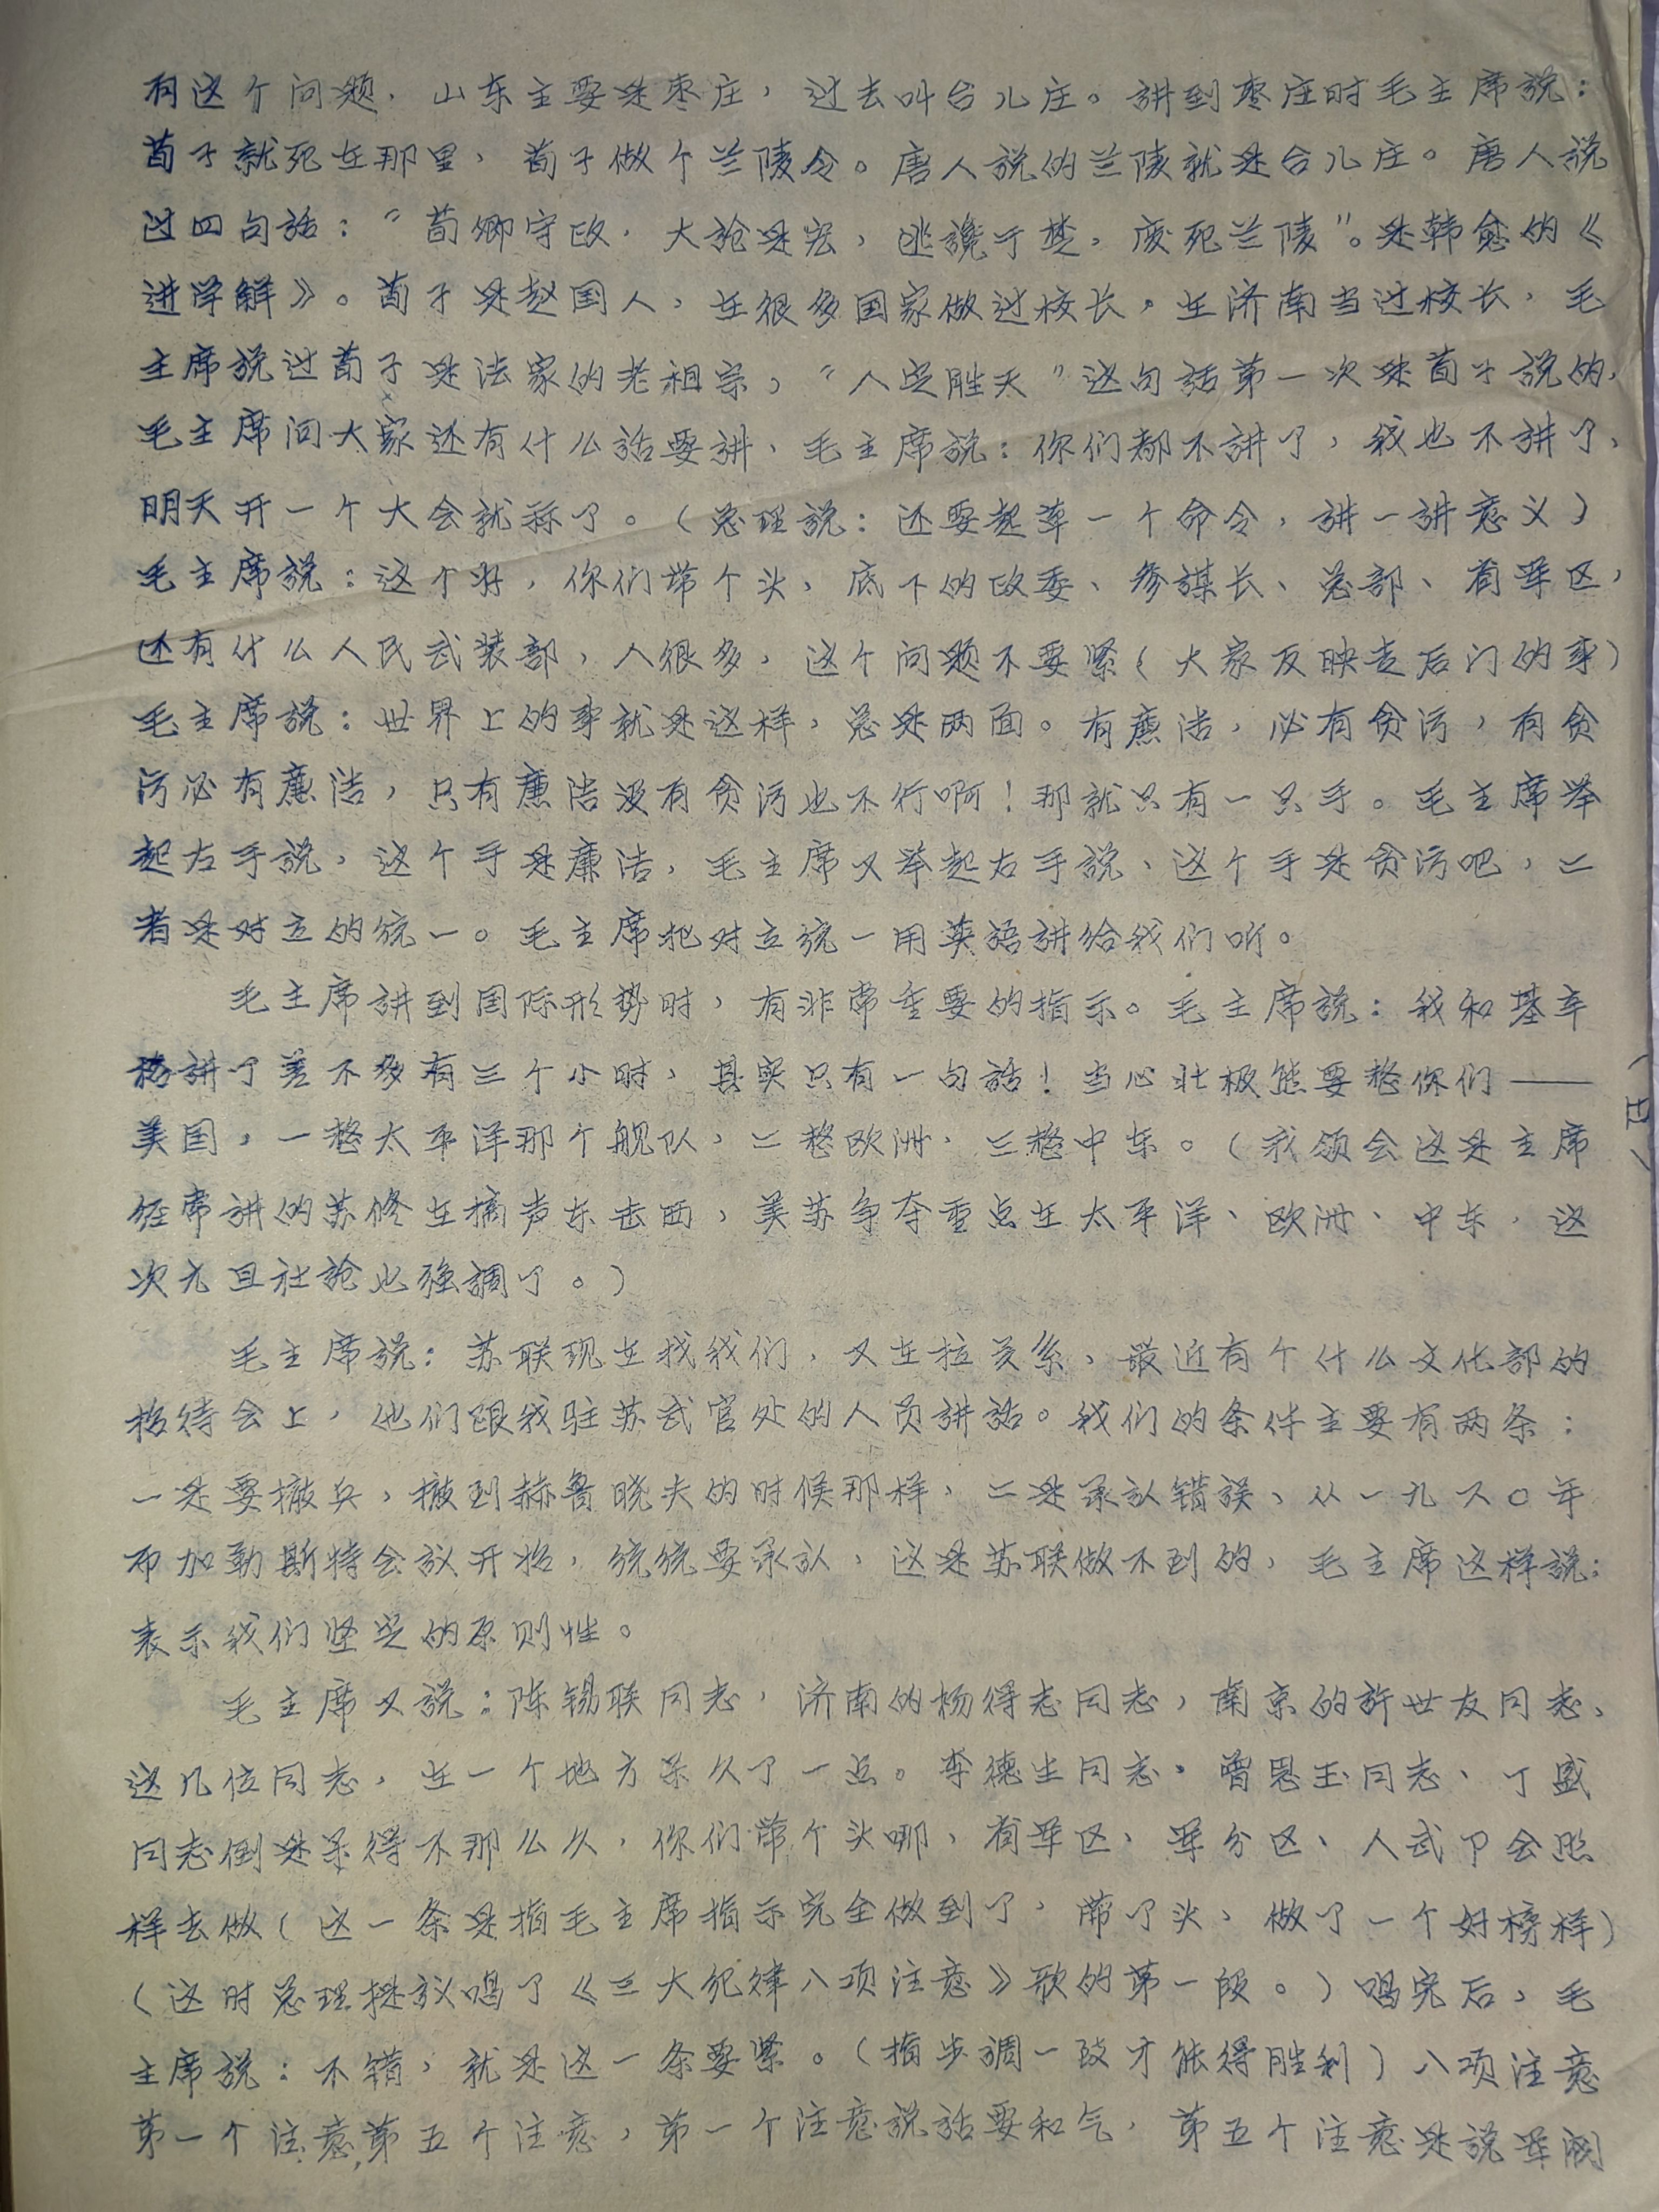 有这个问题，山东主要是枣庄，过去叫台儿庄。讲到枣庄时毛主席説：
荀子就死在那里，荀子做个兰陵令。唐人説的兰陵就是台儿庄。唐人説
过四句話：“荀卿守政，大論是宏，逃讒于楚，废死兰陵”。是韩愈的《
进学解》。荀子是赵国人，在很多国家做过校长，在济南当过校长，毛
主席説过荀子是法家的老祖宗，“人定胜天”这句話第一次是荀子説的，
毛主席问大家还有什么話要讲、毛主席説：你们都不讲了，我也不讲了，
明天开一个大会就算了。（总理説：还要起草一个命令，讲一讲意义）
毛主席説：这个好，你们带个头，底下的政委、参謀长、总部、省军区，
还有什么人民武装部，人很多，这个问题不要紧（大家反映走后门的事）
毛主席説：世界上的事就是这样，总是两面。有廉洁，必有贪污，有贪
污必有廉洁，只有廉洁没有贪污也不行啊！那就只有一只手。毛主席举
起左手説，这个手是廉洁，毛主席又举起右手説、这个手是贪污吧，二
者是对立的统一。毛主席把对立统一用英語讲给我们听。
毛主席讲到国际形势时，有非常重要的指示。毛主席説：我和基辛
格讲了差不多有三个小时，其实只有一句話！当心北极熊要整你们——
美国，一整太平洋那个舰队，二整欧洲，三整中东。（我领会这是主席
经常讲的苏修在搞声东击西，美苏争夺重点在太平洋、欧洲、中东，这
次元旦社論也强調了。）
（五）
毛主席説：苏联现在找我们，又在拉关系，最近有个什么文化部的
招待会上，他们跟我驻苏武官处的人员讲話。我们的条件主要有两条：
一是要撤兵，撤到赫鲁晓夫的时候那样，二是承认错误、从一九六〇年
布加勒斯特会议开始，统统要承认，这是苏联做不到的，毛主席这样説：
表示我们坚定的原则性。
毛主席又説：陈锡联同志，济南的杨得志同志，南京的許世友同志、
这几位同志，在一个地方呆久了一点。李德生同志，曾思玉同志、丁盛
同志倒是呆得不那么久，你们带个头哪、省军区，军分区、人武卩会照
样去做（这一条是指毛主席指示完全做到了，带了头，做了一个好榜样）
（这时总理提议唱了《三大纪律八项注意》歌的第一段。）唱完后，毛
主席説：不错，就是这一条要紧。（指步調一致才能得胜利）八项注意
第一个注意，第五个注意，第一个注意説話要和气，第五个注意是説军阀